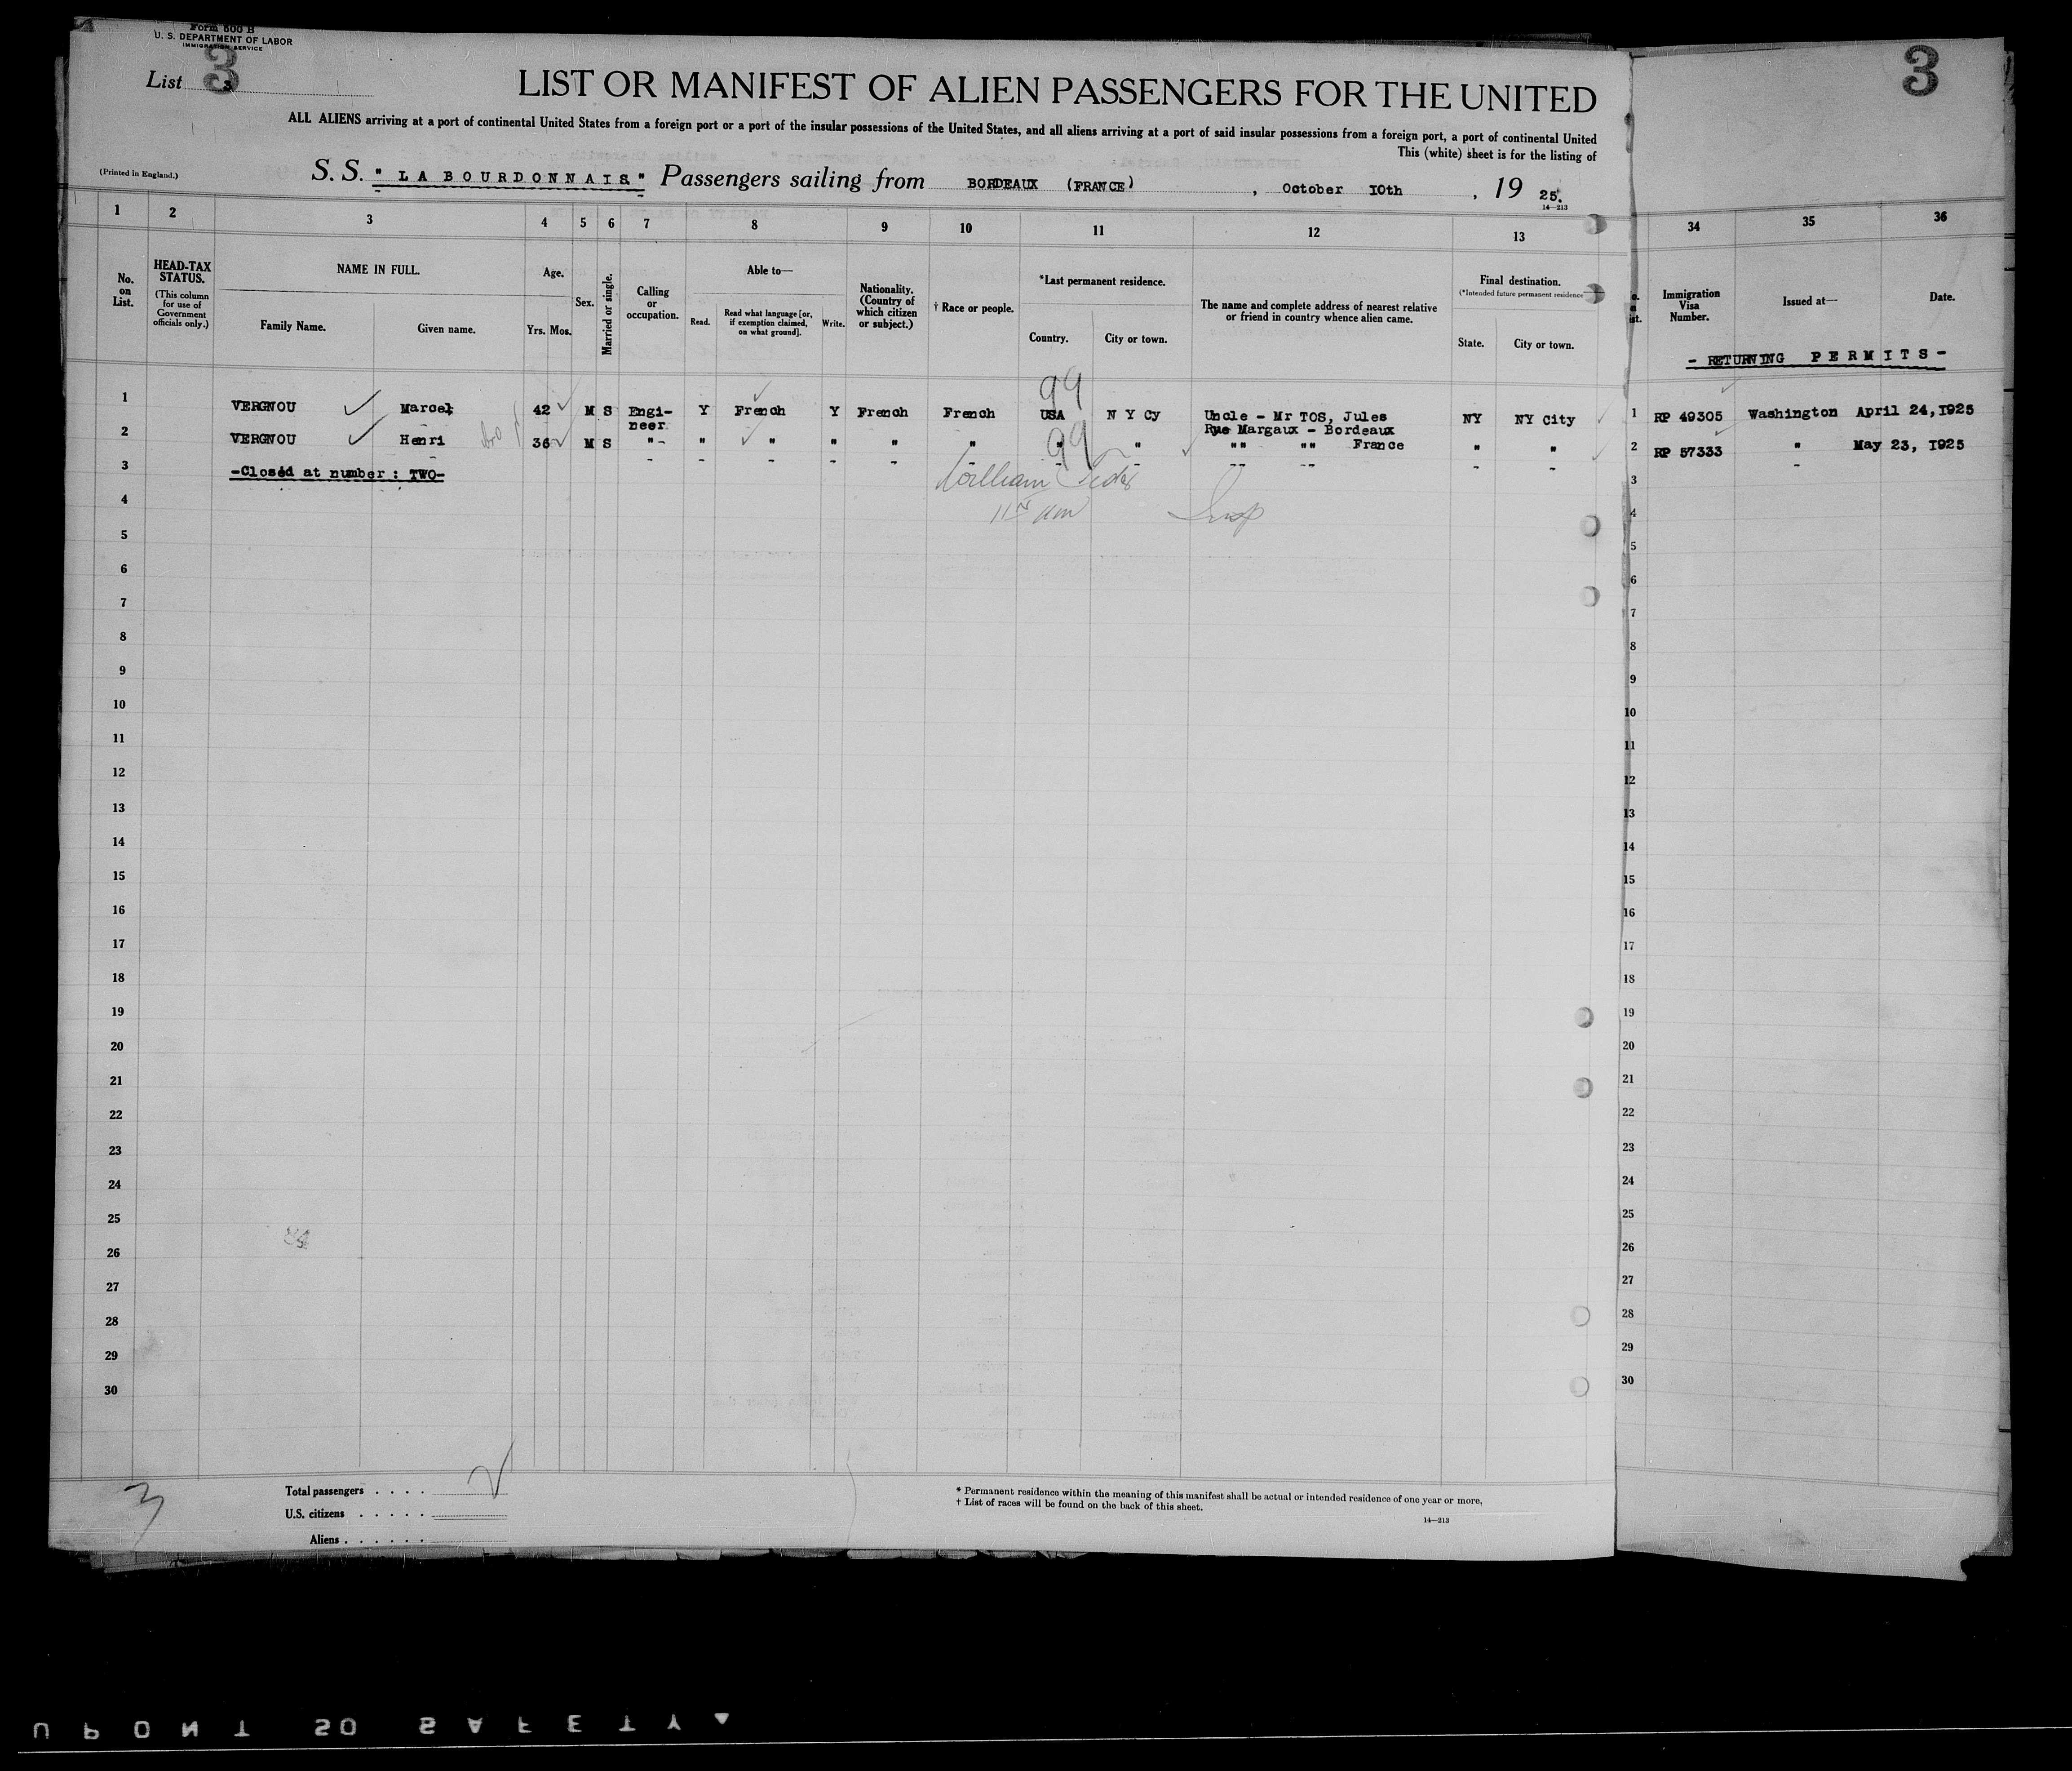 Form 500 B
U. S. DEPARTMENT OF LABOR
IMMIGRATION SERVICE
List 3
3
LIST OR MANIFEST OF ALIEN PASSENGERS FOR THE UNITED
ALL ALIENS arriving at a port of continental United States from a foreign port or a port of the insular possessions of the United States, and all aliens arriving at a port of said insular possessions from a foreign port, a port of continental United
This (white) sheet is for the listing of
(Printed in England.)
S. S. "LA BOURDONNAIS" Passengers sailing from BORDEAUX (FRANCE), October 10th, 19 25.
14—213
1 2 3 4 5 6 7 8 9 10 11 12 13 34 35 36
No. on List.
HEAD-TAX STATUS.
(This column for use of Government officials only.)
NAME IN FULL.
Family Name. Given name.
Age.
Yrs. Mos.
Sex.
Married or single.
Calling or occupation.
Able to—
Read. Read what language [or, if exemption claimed, on what ground]. Write.
Nationality. (Country of which citizen or subject.)
† Race or people.
*Last permanent residence.
Country. City or town.
The name and complete address of nearest relative or friend in country whence alien came.
Final destination.
(*Intended future permanent residence
State. City or town.
Immigration Visa Number.
Issued at—
Date.
- RETURNING PERMITS -
99
1 VERGNOU Marcel 42 M S Engi-neer Y French Y French French USA N Y Cy Uncle - Mr TOS, Jules NY NY City 1 RP 49305 Washington April 24,1925
Rue Margaux - Bordeaux
99
2 VERGNOU Henri 36 M S "- " " " " " " " "" "" France " " 2 RP 57333 " May 23, 1925
3 -Closed at number : TWO- - - - - - - - -- -- - - - 3
William
4 Insp 4
5 5
6 6
7 7
8 8
9 9
10 10
11 11
12 12
13 13
14 14
15 15
16 16
17 17
18 18
19 19
20 20
21 21
22 22
23 23
24 24
25 25
26 26
27 27
28 28
29 29
30 30
3
Total passengers . . . .
U.S. citizens . . . . .
Aliens . . . . . .
* Permanent residence within the meaning of this manifest shall be actual or intended residence of one year or more,
† List of races will be found on the back of this sheet.
14—213
UPONT SO SAFETY